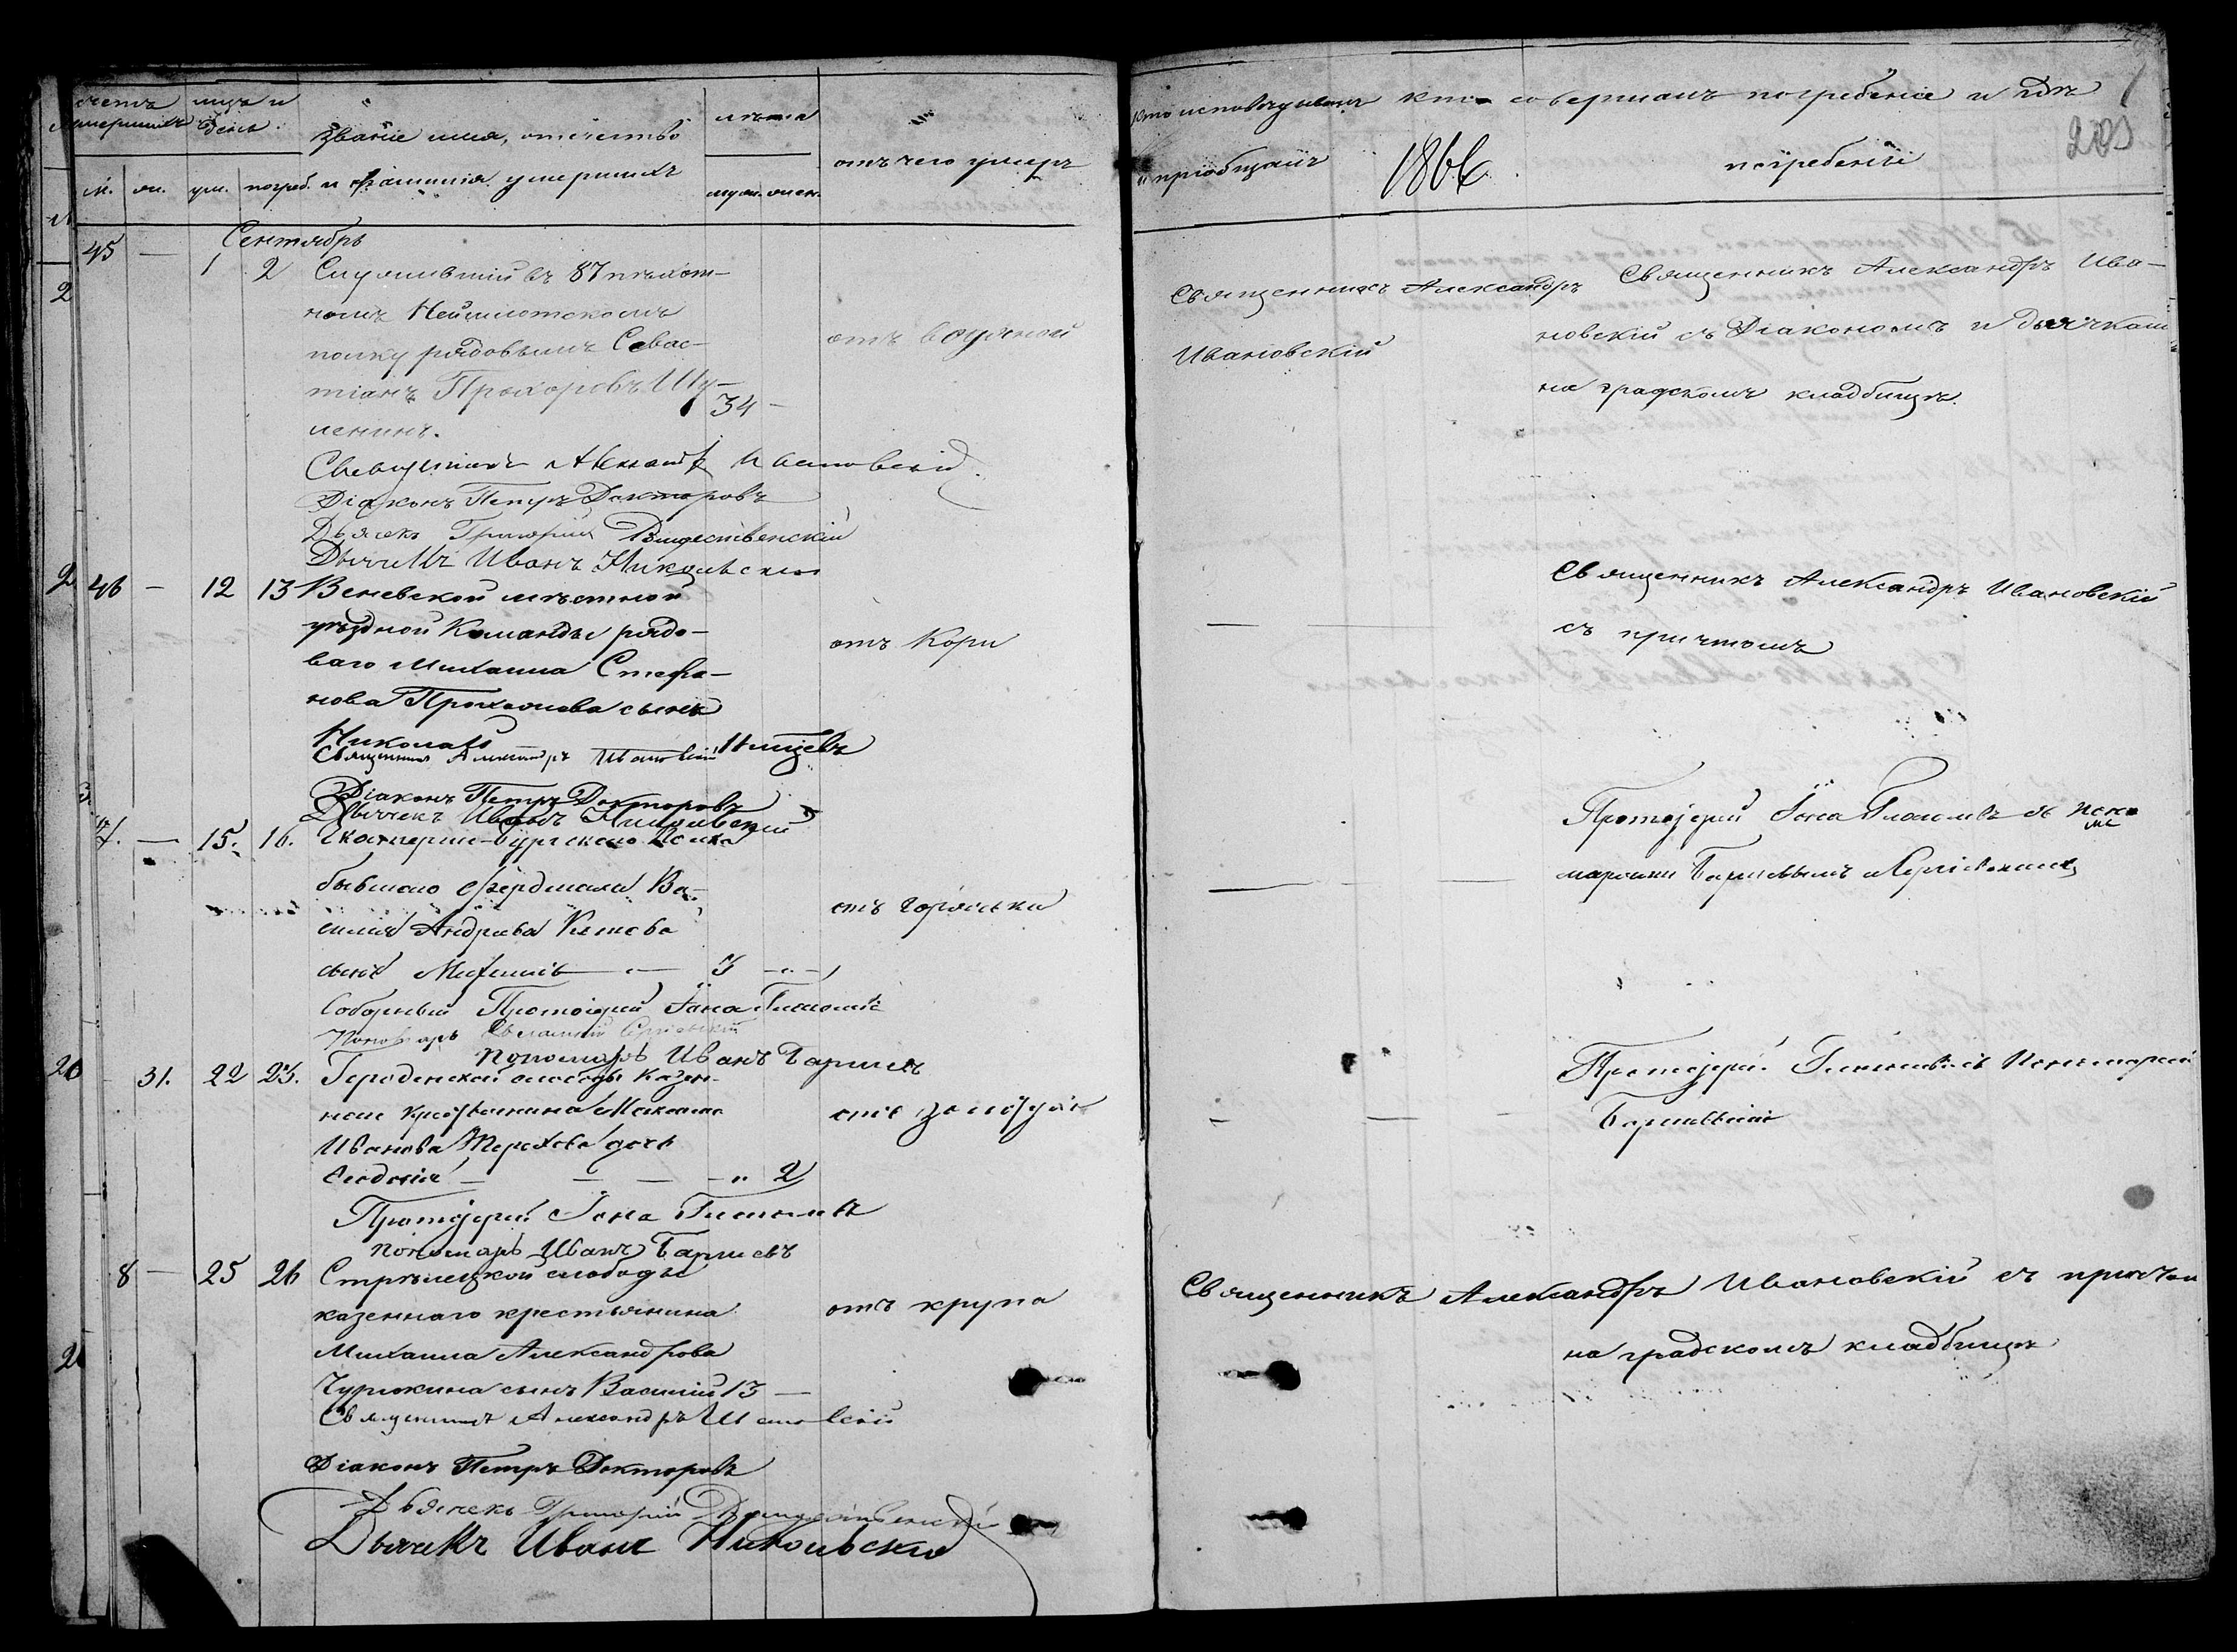 счетъ умершихъ
мца и день
званіе имя, отечество
и фамилія умершихъ
лѣта
отъ чего умеръ
м. ж. ум. погреб. муж. жен.
Кто исповѣдывалъ
и пріобщалъ
1866
кто совершалъ погребеніе и гдѣ
погребены
Сентябрь
45 — 1 2 Служившій въ 87 пѣхот-
номъ Нейшлотскомъ
полку рядовымъ Севас-
тіанъ Прохоровъ Шу-
34 —
ленинъ.
отъ водяной
Священникъ Александръ
Ивановскій
Священникъ Александръ Ива-
новскій съ Діакономъ и дьячкомъ
на градскомъ кладбищѣ.
Священникъ Александръ Ивановскій
Діаконъ Петръ Докторовъ
Дьячекъ Григорій Рождественскій
Дьячекъ Иванъ Никольскій
46 — 12 13 Веневской мѣстной
уѣздной Команды рядо-
ваго Михаила Стефа-
нова Прохорова сынъ
Николай
отъ Кори
Священникъ Александръ Ивановскій
съ причтомъ
Священникъ Александръ Ивановскій
Діаконъ Петръ Докторовъ
Дьячекъ Иванъ Никольскій
— 15. 16. Екатерин-бургскаго Полка
бывшаго
Василія Андреева
сынъ
отъ горячки
Протоіерей Іона
Соборный Протоіерей Іона
Пономарь
Пономарь Иванъ
31. 22 23. слободы Казен-
наго крестьянина
Иванова Терехова дочь
Феодосія — — — " 2
отъ золотухи
Протоіерей
Протоіерей Іона
Пономарь Иванъ
8 — 25 26 Стрѣлецкой слободы
казеннаго крестьянина
Михаила Александрова
Чурюкина сынъ Василій 13 —
отъ крупа
Священникъ Александръ Ивановскій съ причтом
на градскомъ кладбищѣ
Священникъ Александръ Ивановскій
Діаконъ Петръ Докторовъ
Дьячекъ Григорій Рождественскій
Дьячекъ Иванъ Никольскій